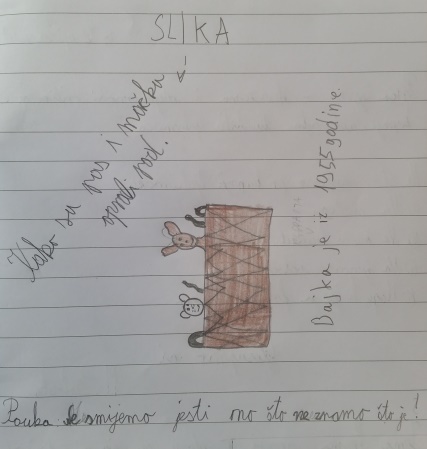 SLIKA
Kako su pas i mačka
oprali pod.
Bajka je iz 1955 godine.
Pouka Ne smijemo jesti ono što ne znamo što je!